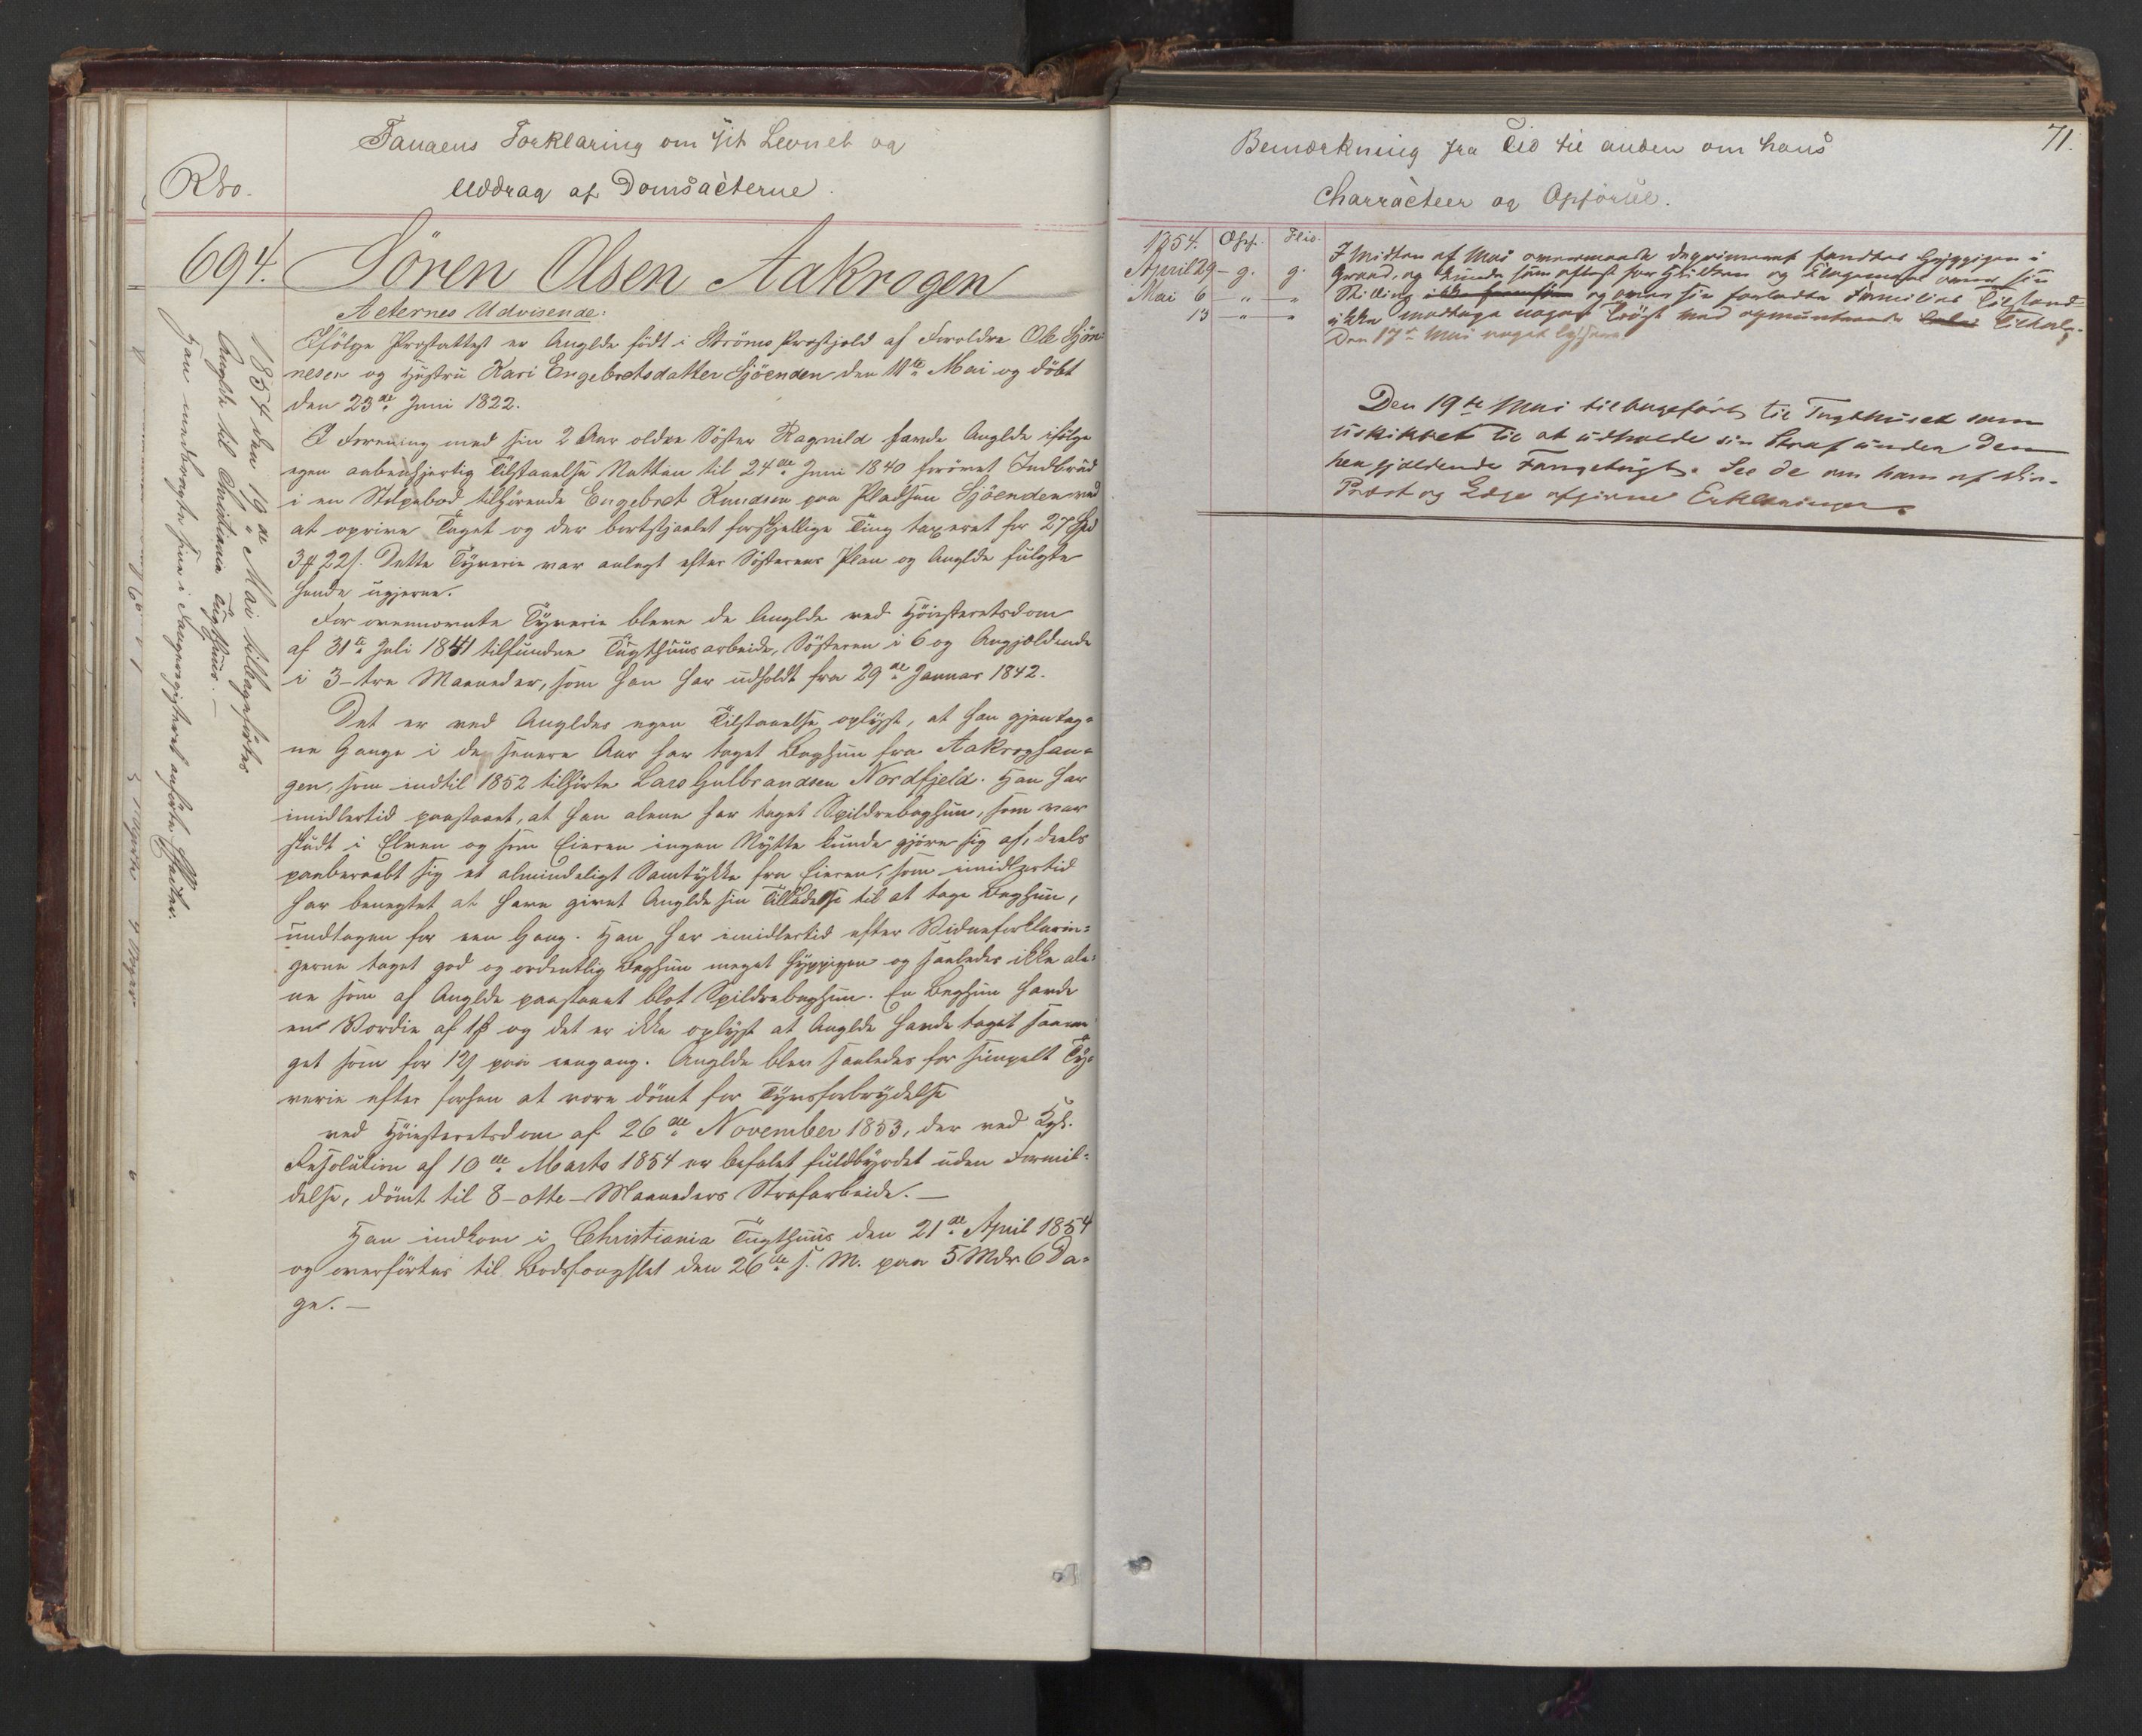 Fangens Forklaring om sit Levnet og
Uddrag af Domsacterne.
No.
694. Sören Olsen Aakrogen
Acternes Udvisende:
Ifölge Præstattest er Anglde födt i Ströms Præstgjeld af Forældre Ole Sjön-
nesen og Hustru Kari Engebretsdatter Sjöenden den 11te Mai og döbt
den 23de Juni 1822.
I Forening med sin 2 Aar ældre Söster Ragnild havde Anglde ifölge
egen aabenhjertig Tilstaaelse Natten til 24de Juni 1840 forövet Indbrud
i en Stolpebod tilhörende Engebret Knudsen paa Pladsen Sjöenden ved
at oprive Taget og der bortstjaalet forskjellige Ting taxeret for 27 Spd
3 ₰ 22 s. Dette Tyverie var anlagt efter Sösterens Plan og Anglde fulgte
hende ugjerne.
For ovennævnte Tyverie bleve de Anglde ved Höiesteretsdom
af 31te Juli 1841 tilfundne Tugthuusarbeide, Sösteren i 6 og Angjældende
i 3-tre Maaneder, som han har udholdt fra 29de Januar 1842.
Det er ved Angldes egen Tilstaaelse oplyst, at han gjentag-
ne Gange i de senere Aar har taget Baghun fra Aakroghau-
gen, som indtil 1852 tilhörte Lars Gulbrandsen Nordfjeld. Han har
imidlertid paastaaet, at han alene har taget Spildrebaghun, som var
skudt i Elven og som Eieren ingen Nytte kunde gjöre sig af, deels
paaberaabt sig et almindeligt Samtykke fra Eieren, som imidlertid
har benegtet at have givet Anglde sin Tilladelse til at tage Baghun,
undtagen for een Gang. Han har imidlertid efter Vidneforklarin-
gerne taget god og ordentlig Baghun meget hyppigen og saaledes ikke ale-
ne som af Anglde paastaaet blot Spildrebaghun. En Baghun havde
en Værdie af 1 s og det er ikke oplyst at Anglde havde taget saame-
get som for 12 s paa eengang. Anglde blev saaledes for simpelt Ty-
verie efter forhen at være dömt for Tyvsforbrydelse
ved Höiesteretsdom af 26de November 1853, der ved Kgl.
Resolution af 10de Marts 1854 er befalet fuldbyrdet uden Formil-
delse, dömt til 8-otte-Maaneders Strafarbeide.—
Han indkom i Christiania Tugthuus den 21de April 1854
og overförtes til Bodsfængslet den 26de s. M. paa 5 Mdr 6 Da-
ge.—
1854 den 19de Mai tilbageförtes
Anglde til Christiania Tugthuus.—
Han medbragte sine i Fangeregisteret anförte Effecter.
Bemærkning fra Tid til anden om hans
Charracteer og Opförsel.
71.
1854. Opf. Flid.
April 29 – g. g.
Mai 6 – " – "
13 – " – "
I Midten af Mai
Grad, og kunde som oftest for og over sin
Stilling og over sin forladte Families Tilstand
ikke modtage nogen Tröst
Den 17de Mai noget
Den 19de Mai tilbagefört til Tugthuset som
uskikket til at udholde sin Straf under den
her gjældende Fangetugt. See de om ham af
Præst og Læge afgivne Erklæringer.